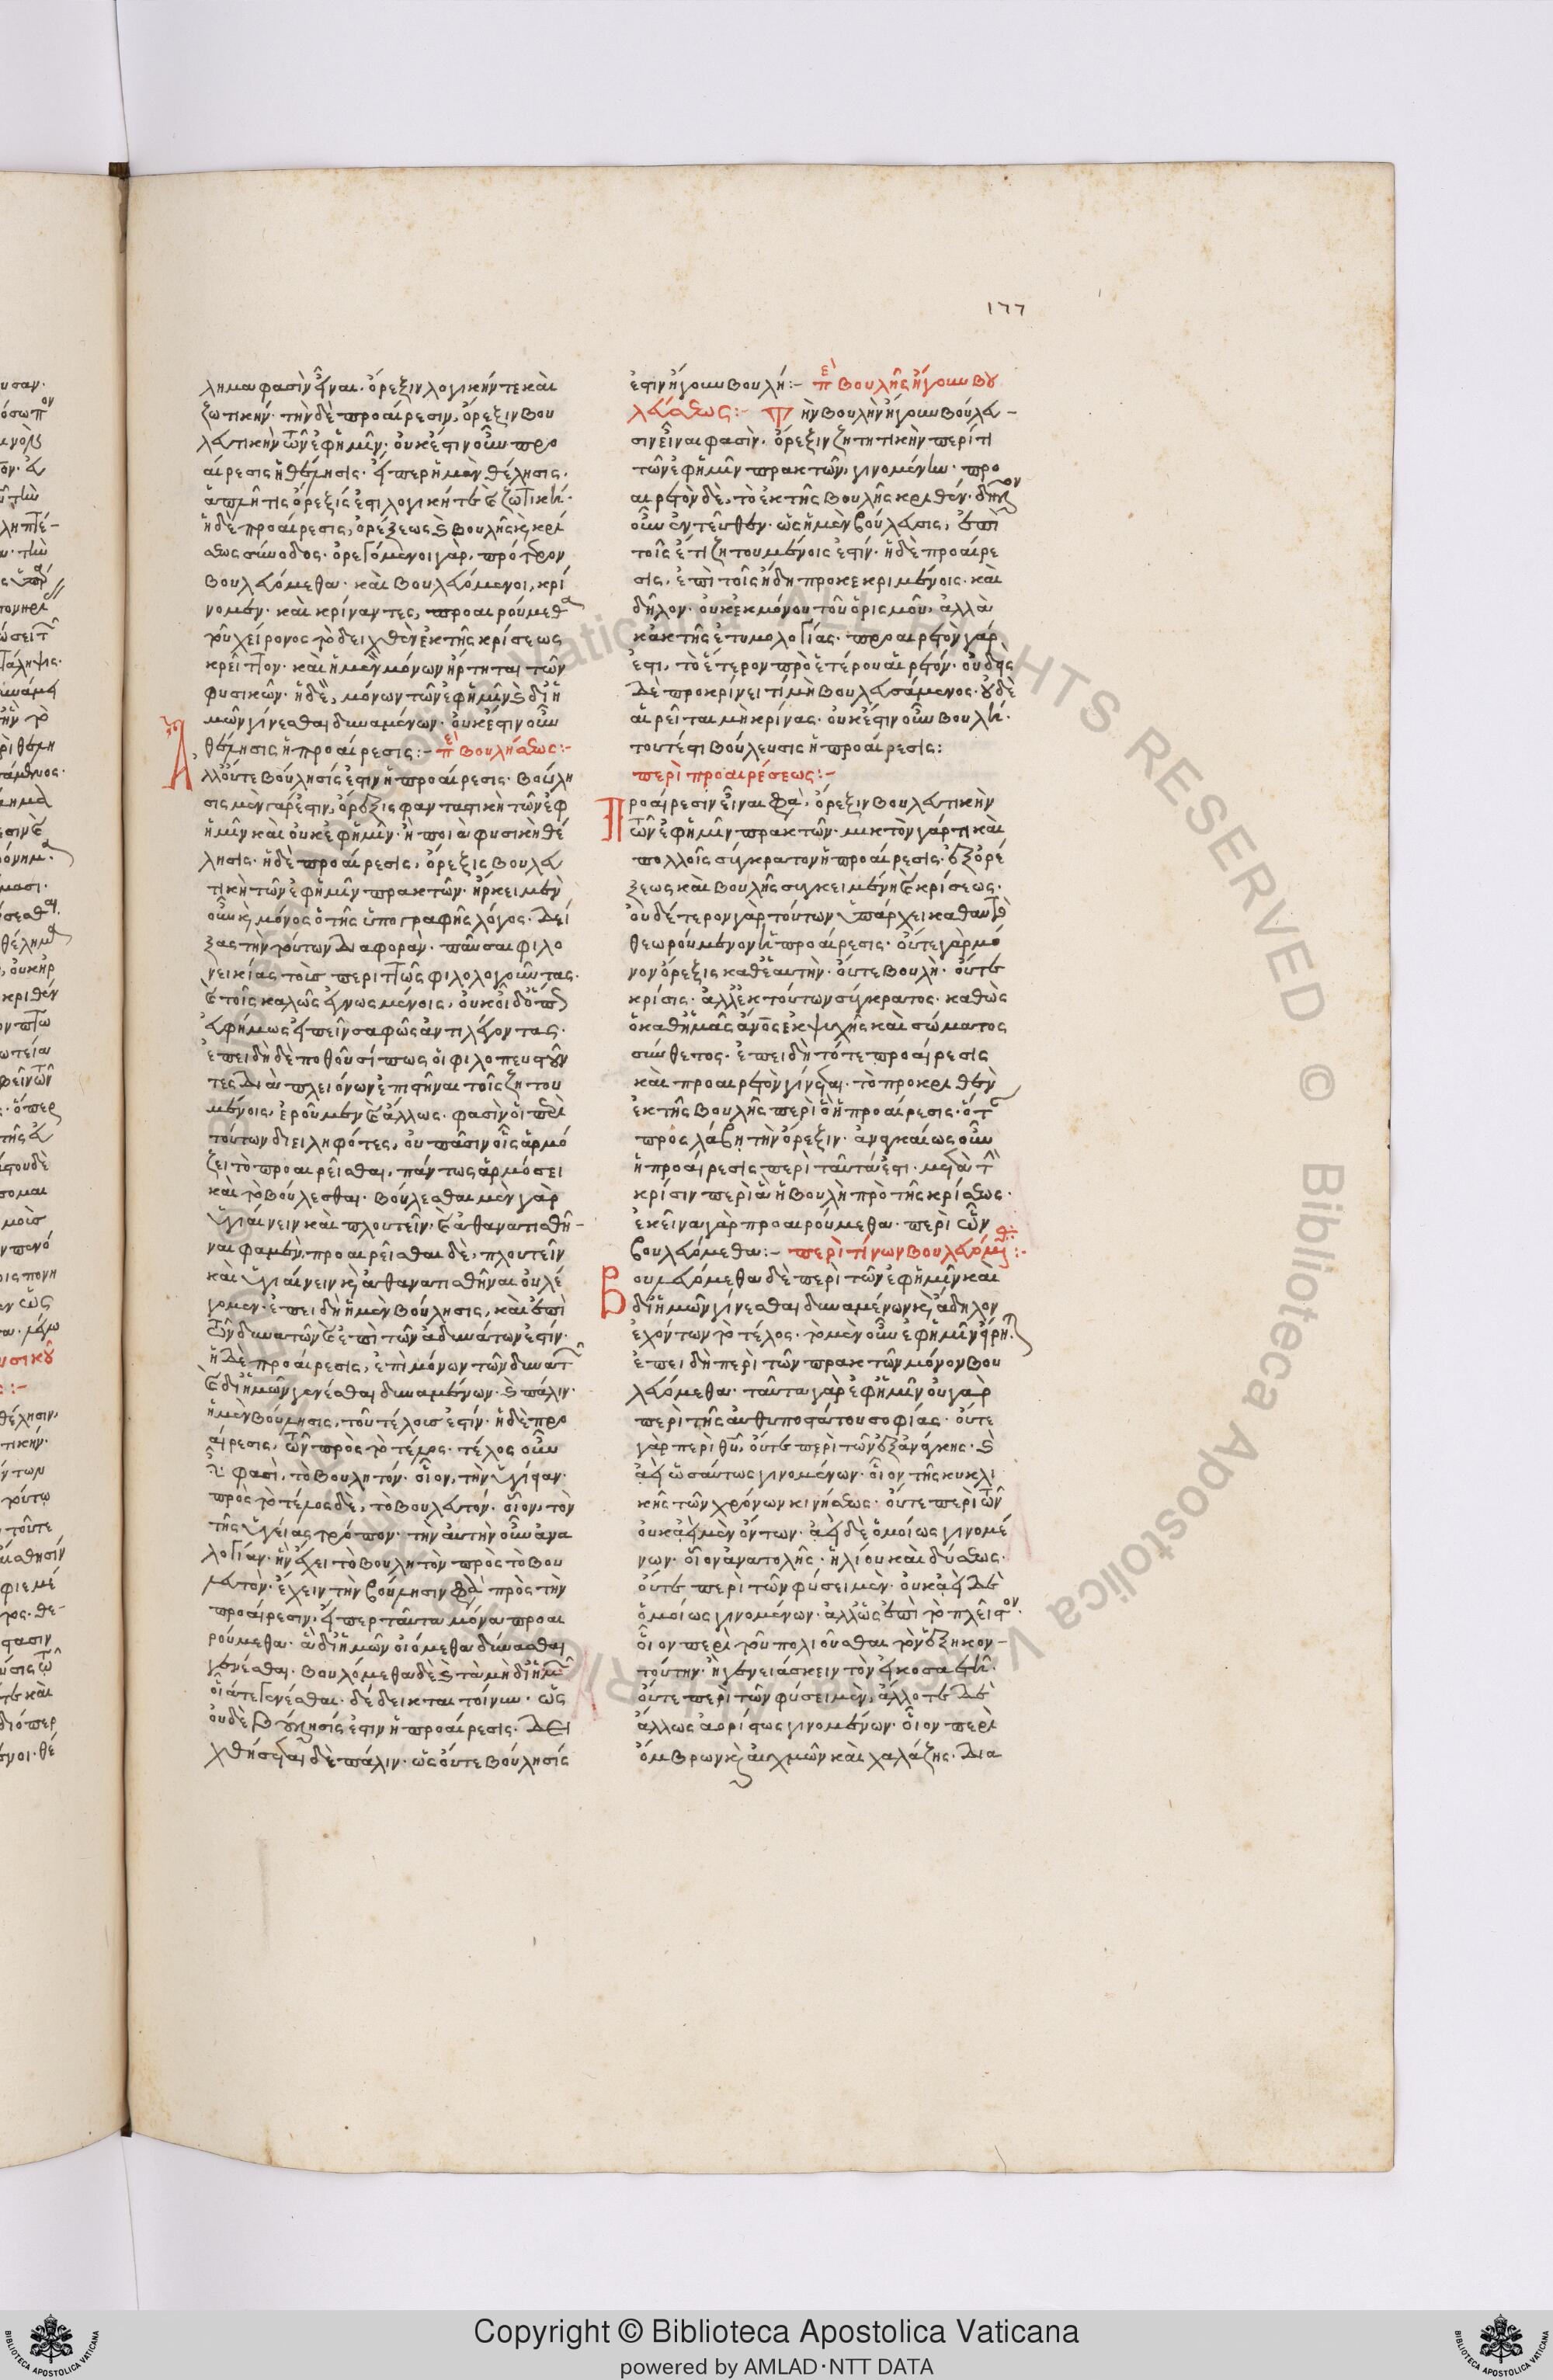 177
λημα φασὶν εἶναι. ὄρεξιν λογικήν τε καὶ
ζωτικήν. τὴν δὲ προαίρεσιν, ὄρεξιν βου
λευτικὴν τῶν ἐφ' ἡμῖν. οὐκ ἔστιν οὖν προ
αίρεσις ἡ θέλησις. εἴπερ ἡ μὲν θέλησις.
ἁπλῆ τις ὄρεξίς ἐστι λογική τε καὶ ζωτική.
ἡ δὲ προαίρεσις, ὀρέξεως καὶ βουλῆς καὶ κρί
σεως σύνοδος. ὀρεγόμενοι γὰρ, πρότερον
βουλευόμεθα. καὶ βουλευόμενοι, κρί
νομεν. καὶ κρίναντες, προαιρούμεθα
τοῦ χείρονος τὸ δειχθὲν ἐκ τῆς κρίσεως
κρεῖττον. καὶ ἡ μὲν μόνων ἤρτηται τῶν
φυσικῶν. ἡ δὲ, μόνων τῶν ἐφ' ἡμῖν καὶ δι' ἡ
μῶν γίνεσθαι δυναμένων. οὐκ ἔστιν οὖν
θέλησις ἡ προαίρεσις:– περὶ βουλήσεως:–
Ἀλλ' οὔτε βούλησίς ἐστιν ἡ προαίρεσις. βούλη
σις μὲν γάρ ἐστιν, ὄρεξις φανταστικὴ τῶν ἐφ'
ἡμῖν καὶ οὐκ ἐφ' ἡμῖν. ἡ ποιὰ φυσικὴ θέ
λησις. ἡ δὲ προαίρεσις, ὄρεξις βουλευ
τικὴ τῶν ἐφ' ἡμῖν πρακτῶν. ἤρκει μὲν
οὖν καὶ μόνος ὁ τῆς ὑπογραφῆς λόγος. δεί
ξας τὴν τούτων διαφορὰν. παῦσαι φιλο
νεικίας τοὺς περιττῶς φιλολογοῦντας.
καὶ τοῖς καλῶς
εὐφήμως εἰπεῖν σαφῶς ἀντιλέγοντας.
ἐπειδὴ δὲ ποθοῦσί πως οἱ φιλοπευστοῦν
τες διὰ πλειόνων ἐπιστῆναι τοῖς ζητου
μένοις, ἐροῦμεν καὶ ἄλλως. φασὶν οἱ περὶ
τούτων διειληφότες, οὐ πᾶσιν οἷς ἁρμό
ζει τὸ προαιρεῖσθαι, πάντως ἁρμόσει
καὶ τὸ βούλεσθαι. βούλεσθαι μὲν γὰρ
ὑγιαίνειν καὶ πλουτεῖν. καὶ ἀθανατισθῆ–
ναι φαμὲν, προαιρεῖσθαι δὲ, πλουτεῖν
καὶ ὑγιαίνειν καὶ ἀθανατισθῆναι οὐ λέ
γομεν. ἐπειδὴ ἡ μὲν βούλησις, καὶ ἐπὶ
τῶν δυνατῶν καὶ ἐπὶ τῶν ἀδυνάτων ἐστίν.
ἡ δὲ προαίρεσις, ἐπὶ μόνων τῶν δυνατῶν
καὶ δι' ἡμῶν γενέσθαι δυναμένων. καὶ πάλιν.
ἡ μὲν βούλησις, τοῦ τέλους ἐστίν. ἡ δὲ προ
αίρεσις, τῶν πρὸς τὸ τέλος. τέλος οὖν
φασὶ, τὸ βουλητόν. οἷον, τὴν ὑγίειαν.
πρὸς τὸ τέλος δὲ, τὸ βουλευτόν. οἷον, τὸν
τῆς ὑγείας τρόπον. τὴν αὐτὴν οὖν ἀνα
λογίαν. ἣν ἔχει τὸ βουλητὸν πρὸς τὸ βου
λευτὸν. ἔχειν τὴν βούλησιν φασὶ πρὸς τὴν
προαίρεσιν, εἴπερ ταῦτα μόνα προαι
ρούμεθα. ἃ δι' ἡμῶν οἰόμεθα δύνασθαι
γενέσθαι. βουλόμεθα δὲ καὶ τὰ μὴ δι' ἡμῶν
οἷά τε γενέσθαι. δέδεικται τοίνυν. ὡς
οὐδὲ βούλησίς ἐστιν ἡ προαίρεσις. δει
χθήσεται δὲ πάλιν. ὡς οὔτε βούλησίς
ἐστιν ἤγουν βουλή:– περὶ βουλῆς ἤγουν βου
λεύσεως:– Τὴν βουλὴν ἤγουν βούλευ–
σιν εἶναι φασὶν. ὄρεξιν ζητητικὴν περί τι
τῶν ἐφ' ἡμῖν πρακτῶν, γινομένην. προ
αιρετὸν δὲ, τὸ ἐκ τῆς βουλῆς κριθέν. δῆλον
οὖν ἐντεῦθεν. ὡς ἡ μὲν βούλευσις, ἐπὶ
τοῖς ἔτι ζητουμένοις ἐστίν. ἡ δὲ προαίρε
σις, ἐπὶ τοῖς ἤδη προκεκριμένοις. καὶ
δῆλον. οὐκ ἐκ μόνου τοῦ ὁρισμοῦ, ἀλλὰ
κἀκ τῆς ἐτυμολογίας. προαιρετὸν γάρ
ἐστι, τὸ ἕτερον πρὸ ἑτέρου αἱρετόν. οὐδεὶς
δὲ προκρίνει τί μὴ βουλευσάμενος. οὐδὲ
αἱρεῖται μὴ κρίνας. οὐκ ἔστιν οὖν βουλὴ.
τουτέστι βούλευσις ἡ προαίρεσις:
περὶ προαιρέσεως:–
Προαίρεσιν εἶναι φασὶ, ὄρεξιν βουλευτικὴν
τῶν ἐφ' ἡμῖν πρακτῶν. μικτὸν γάρ τι καὶ
πολλοῖς σύγκρατον ἡ προαίρεσις. ἐξ ὀρέ
ξεως καὶ βουλῆς συγκειμένη καὶ κρίσεως.
οὐδέτερον γὰρ τούτων ὑπάρχει καθαυτὸ
θεωρούμενον ἡ προαίρεσις. οὔτε γὰρ μό
νον ὄρεξις καθ' ἑαυτὴν. οὔτε βουλὴ. οὔτε
κρίσις. ἀλλ' ἐκ τούτων σύγκρατος. καθὼς
ὁ καθ' ἡμᾶς ἄνος ἐκ ψυχῆς καὶ σώματος
σύνθετος. ἐπειδὴ τότε προαίρεσις
καὶ προαιρετὸν γίνεται. τὸ προκριθὲν
ἐκ τῆς βουλῆς περὶ ὃ ἡ προαίρεσις. ὅτε
προσλάβῃ τὴν ὄρεξιν. ἀναγκαίως οὖν
ἡ προαίρεσις περὶ ταῦτά ἐστι. μετὰ τὴν
κρίσιν περὶ ἃ ἡ βουλὴ πρὸ τῆς κρίσεως.
ἐκεῖνα γὰρ προαιρούμεθα. περὶ ὧν
βουλευόμεθα:– περὶ τίνων βουλευόμεθα:–
Βουλευόμεθα δὲ περὶ τῶν ἐφ' ἡμῖν καὶ
δι' ἡμῶν γίνεσθαι δυναμένων καὶ ἄδηλον
ἐχόντων τὸ τέλος. τὸ μὲν οὖν ἐφ' ἡμῖν εἴρηται
ἐπειδὴ περὶ τῶν πρακτῶν μόνον βου
λευόμεθα. ταῦτα γὰρ ἐφ' ἡμῖν οὐ γὰρ
περὶ τῆς ἀνθυποστάτου σοφίας. οὔτε
γὰρ περὶ θυ, οὔτε περὶ τῶν ἐξ ἀνάγκης. καὶ
ἀεὶ ὡσαύτως γινομένων. οἷον τῆς κυκλι
κῆς τῶν χρόνων κινήσεως. οὔτε περὶ τῶν
οὐκ ἀεὶ μὲν ὄντων. ἀεὶ δὲ ὁμοίως γινομέ
νων. οἷον ἀνατολῆς. ἡλίου καὶ δύσεως.
οὔτε περὶ τῶν φύσει μὲν. οὐκ ἀεὶ δὲ
ὁμοίως γινομένων. ἀλλ' ὡς ἐπὶ τὸ πλεῖστον.
οἷον περὶ τοῦ πολιοῦσθαι τὸν ἑξηκον–
τούτην. ἢ γενειάσκειν τὸν εἰκοσαετῆ.
οὔτε περὶ τῶν φύσει μὲν, ἄλλοτε δὲ
ἄλλως ἀορίστως γινομένων. οἷον περὶ
ὄμβρων καὶ αὐχμῶν καὶ χαλάζης. δια
Copyright © Biblioteca Apostolica Vaticana
powered by AMLAD·NTT DATA